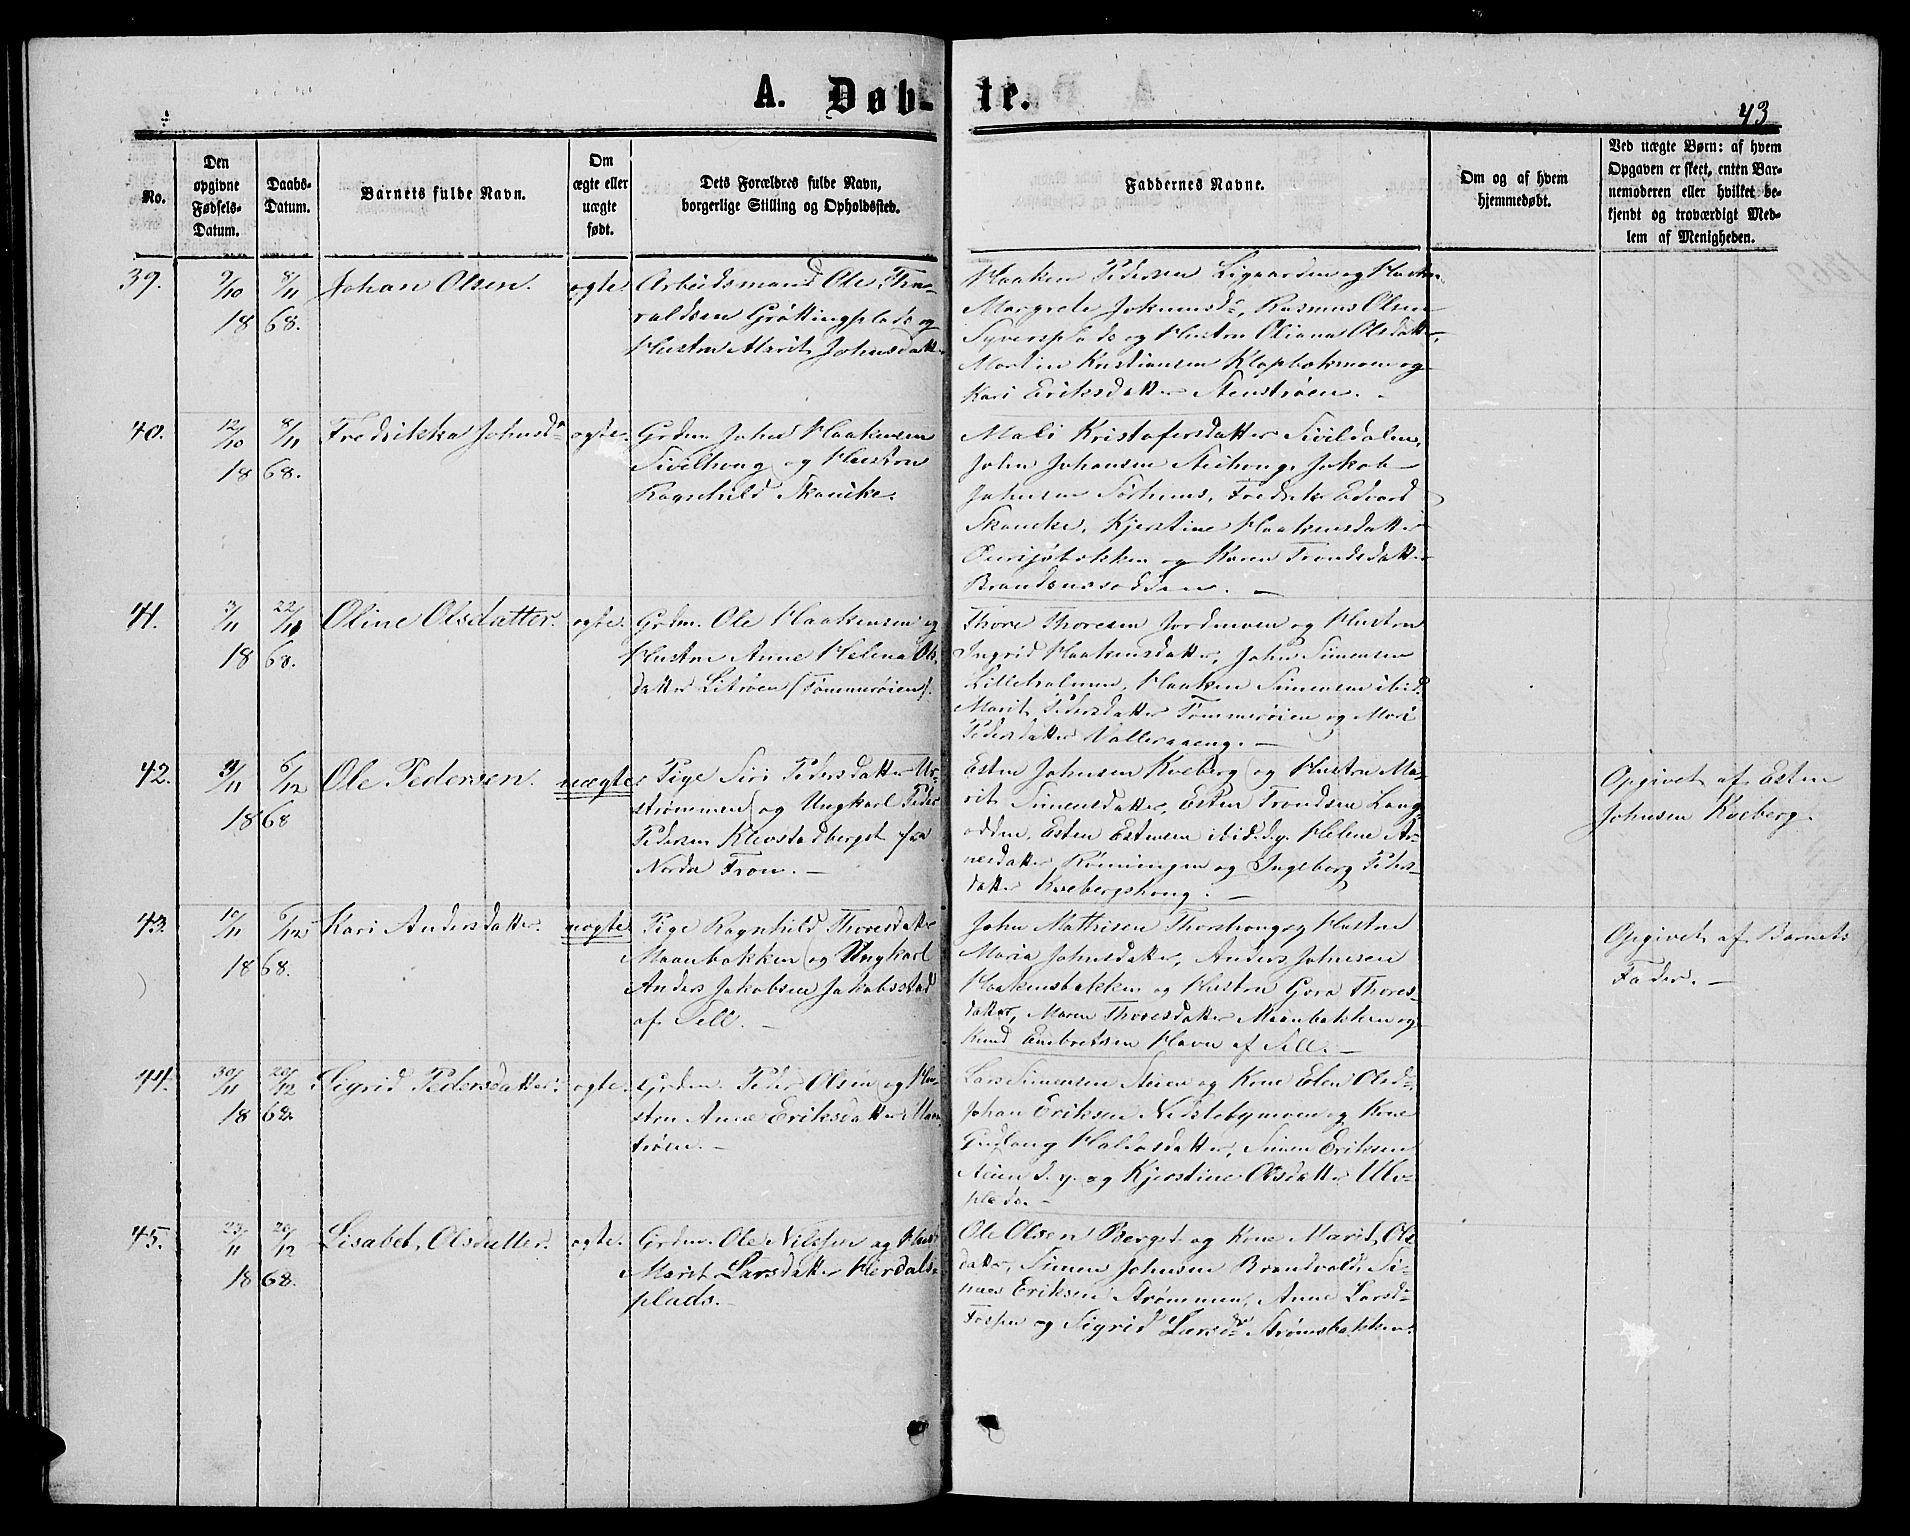 A. Døb-
te.
43
No.
Den
opgivne
Fødsels-
Datum.
Daabs-
Datum.
Barnets fulde Navn.
Om
ægte eller
uægte
født.
Dets Forældres fulde Navn,
borgerlige Stilling og Opholdssted.
Faddernes Navne.
Om og af hvem
hjemmedøbt.
Ved uægte Børn: af hvem
Opgaven er skeet, enten Bar-
nemoderen eller hvilket be-
kjendt og troværdigt Med-
lem af Menigheden.
39.
9/10
1868.
8/11
Johan Olsen.
ægte.
Arbeidsmand Ole Tho-
raldsen Gröttingplads og
Hustru Marit Johnsdatter
Haaken Pedersen Ligaarden og Hustru
Margrete Johannesdr, Rasmus Olsen
Syversplads og Hustru Oliana Olsdatter,
Morten Kristiansen Klapbakmoen og
Kari Eriksdatter Stenstrøen.
40.
12/10
1868.
8/11
Fredrikka Johnsdr
ægte.
Grdm. John Haakensen
Sivilhoug og Hustru
Ragnhild Skancke.
Mali Kristofersdatter Sivildalen,
John Johansen Steihoug, Jakob
Johnsen Sørhuus, Fredrik Edvard
Skancke, Kjerstine Haakensdatter
og Karen Trondsdatter
41.
3/11
1868.
22/11
Oline Olsdatter.
ægte.
Grdm. Ole Haakensen og
Hustru Anne Helena Ols-
datter Litrøen (Tømmerøien).
Thore Thoresen Jordmoen og Hustru
Ingrid Haakensdatter, John Simensen
Lilleholmen, Haaken Simensen ibid.
Marit Pedersdatter Tømmerøien og Mari
Pedersdatter Volleraaeng.
42.
4/11
1868
6/12
Ole Pedersen.
uægte
Pige Siri Pedersdatter Ur-
strømmen og Ungkarl Peder
Pedersen Klevstadberget fra
Nordre Fron.
Esten Johnsen Kveberg og Hustru Ma-
rit Simensdatter, Esten Trondsen Lang-
odden, Esten Estensen ibid. d.y. Helene Ar-
nesdatter Rönningen og Ingeborg Peders-
datter Kvebergshoug.
Opgivet af Esten
Johnsen Kveberg.
43.
10/11
1868.
6/12
Kari Andersdatter.
uægte
Pige Ragnhild Thoresdatter
Maanbakken og Ungkarl
Anders Jakobsen Jakobsstad
af Sell.
John Mathisen Thorshoug og Hustru
Maria Johnsdatter, Anders Johnsen
Haakensbakken og Hustru Gora Thores-
datter, Maren Thoresdatter Maanbakken og
Knud Embretsen Havn af Sell.
Opgivet af Barnets
Fader.
44.
30/11
1868.
20/12
Sigrid Pedersdatter.
ægte.
Grdm. Peder Olsen og Hu-
stru Anne Eriksdatter Moen-
trøen.
Lars Simensen Steien og Kone Elen Olsdr,
Johan Eriksen Nedstebymoen og Kone
Gudlaug Haldosdatter, Simen Eriksen
Steien d. y. og Kjerstine Olsdatter Ulv-
plads.
45.
23/11
1868.
20/12
Lisabet Olsdatter.
ægte.
Grdm. Ole Nilssen og Hust.
Marit Larsdatter Herdals-
plads.
Ole Olsen Berget og Kone Marit Ols-
datter, Simen Johnsen Brandvold, Si-
mon Eriksen Strømmen, Anne Larsdr
Fossen og Sigrid Larsdr Strømsbakken.